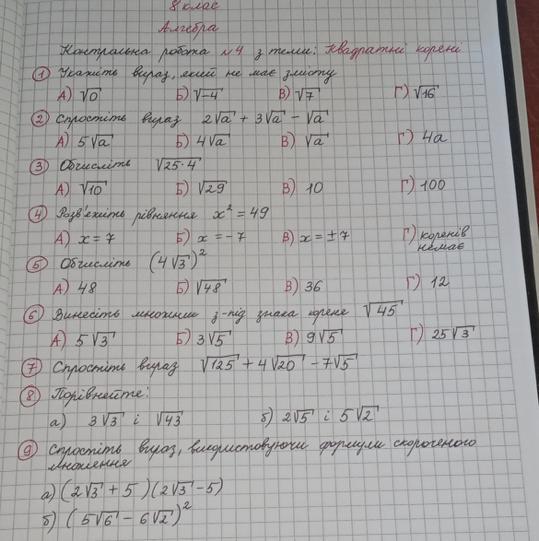 8 клас
Алгебра
Контрольна робота №4 з теми: Квадратні корені
① Укажіть вираз, який не має змісту
А) √0 Б) √-4 В) √7 Г) √16
② Спростіть вираз 2√a + 3√a - √a
А) 5√a Б) 4√a В) √a Г) 4a
③ Обчисліть √25·4
А) √10 Б) √29 В) 10 Г) 100
④ Розв'яжіть рівняння x² = 49
А) x = 7 Б) x = -7 В) x = ±7 Г) коренів
немає
⑤ Обчисліть (4√3)²
А) 48 Б) √48 В) 36 Г) 12
⑥ Винесіть множник з-під знака кореня √45
А) 5√3 Б) 3√5 В) 9√5 Г) 25√3
⑦ Спростіть вираз √125 + 4√20 - 7√5
⑧ Порівняйте:
а) 3√3 і √43 б) 2√5 і 5√2
⑨ Спростіть вираз, використовуючи формули скороченого
множення
а) (2√3 + 5)(2√3 - 5)
б) (5√6 - 6√2)²